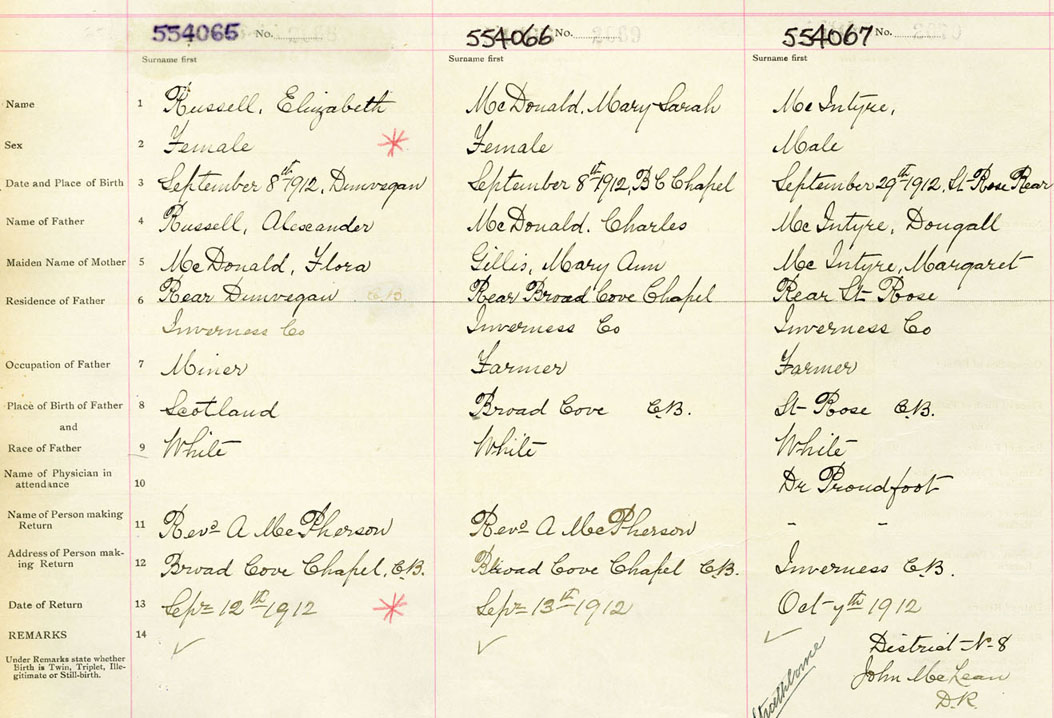 554065 No. 554066 No. 554067 No.
Surname first Surname first Surname first
Name 1 Russell, Elizabeth McDonald, Mary Sarah McIntyre,
Sex 2 Female Female Male
Date and Place of Birth 3 September 8th 1912, Dunvegan September 8th 1912, B C Chapel September 29th 1912, St Rose Rear
Name of Father 4 Russell, Alexander McDonald, Charles McIntyre, Dougall
Maiden Name of Mother 5 McDonald, Flora Gillis, Mary Ann McIntyre, Margaret
Residence of Father 6 Rear Dunvegan C.B. Rear Broad Cove Chapel Rear St Rose
Inverness Co Inverness Co Inverness Co
Occupation of Father 7 Miner Farmer Farmer
Place of Birth of Father 8 Scotland Broad Cove C.B. St Rose C.B.
and
Race of Father 9 White White White
Name of Physician in
attendance 10 Dr Proudfoot
Name of Person making
Return 11 Revd A McPherson Revd A McPherson - -
Address of Person mak-
ing Return 12 Broad Cove Chapel, C.B. Broad Cove Chapel C.B. Inverness C.B.
Date of Return 13 Sept 12th 1912 Sept 13th 1912 Oct 7th 1912
REMARKS 14 District No 8
Under Remarks state whether
Birth is Twin, Triplet, Ille-
gitimate or Still-birth.
John McLean
D.R.
Strathlorne